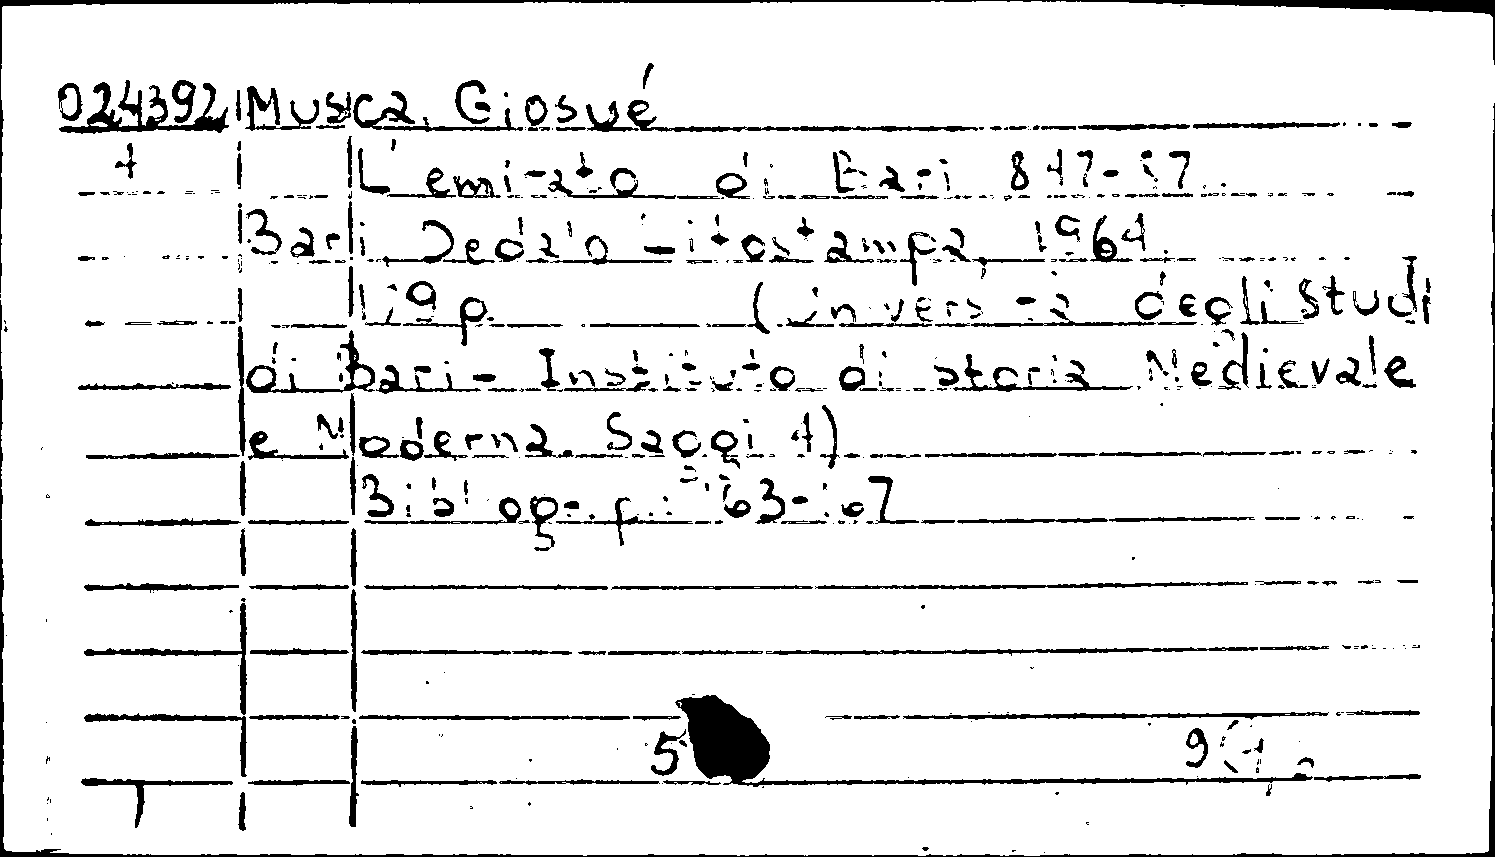 024392 Musca, Giosué
4 L'emirato di Bari 847-87.
Bari, Dedalo Litostampa, 1964.
p. (Universita degli Studi
di Bari - Instituto di storia Medievale
e Moderna. Saggi 4)
Bibliogr. p.: 163-167
5